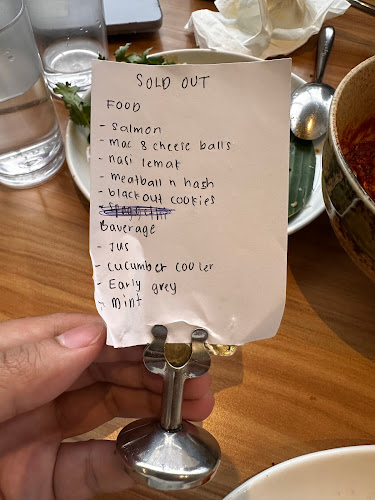 SOLD OUT
FOOD
- Salmon
- mac & cheese balls
- nasi lemak
- meatball n hash
- blackout cookies
Baverage
- Jus
- cucumber cooler
- Early grey
- Mint